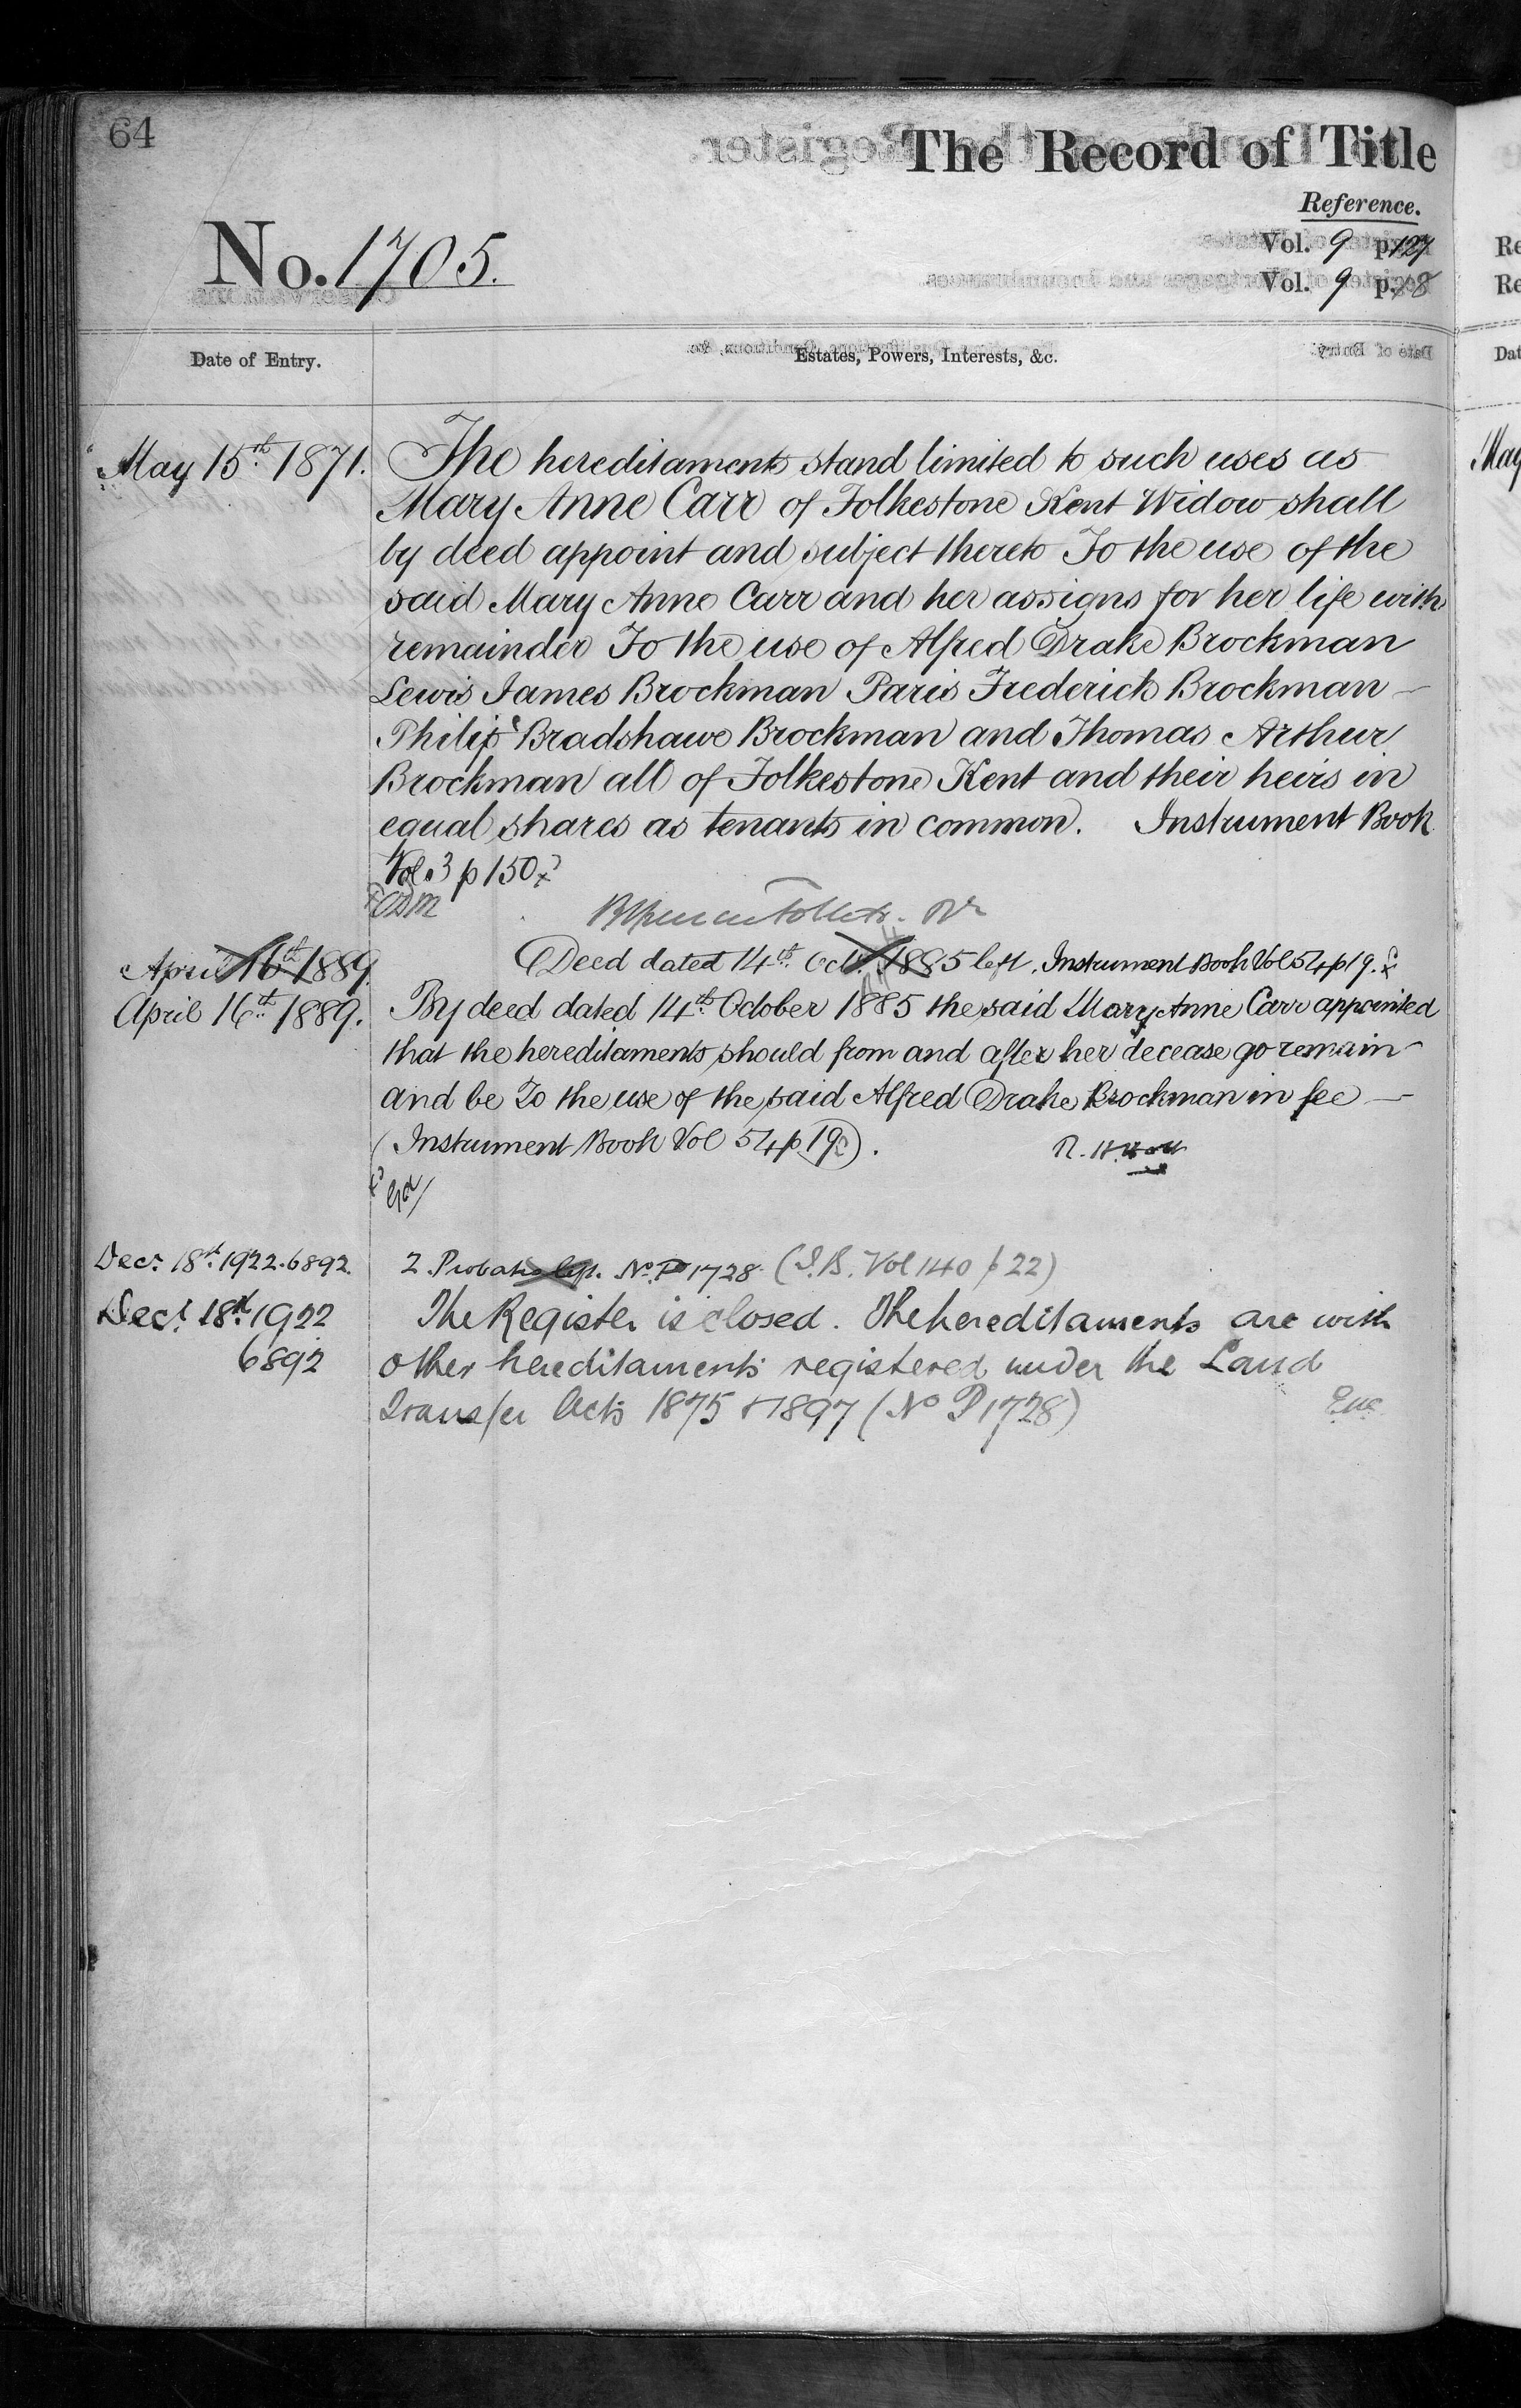 64
The Record of Title
Reference.
No. 1705.
Vol. 9 p. 127
Vol. 9 p. 8
Date of Entry.
Estates, Powers, Interests, &c.
May 15th 1871. The hereditaments stand limited to such uses as
Mary Anne Carr of Folkestone Kent Widow shall
by deed appoint and subject thereto To the use of the
said Mary Anne Carr and her assigns for her life with
remainder To the use of Alfred Drake Brockman
Lewis James Brockman Paris Frederick Brockman
Philip Bradshawe Brockman and Thomas Arthur
Brockman all of Folkestone Kent and their heirs in
equal shares as tenants in common. Instrument Book
Vol. 3 p 150
April 16th 1889. Deed dated 14th Oct. 1885 left. Instrument Book Vol 54 p 19.
April 16th 1889. By deed dated 14th October 1885 the said Mary Anne Carr appointed
that the hereditaments should from and after her decease go remain
and be To the use of the said Alfred Drake Brockman in fee
(Instrument Book Vol 54 p 19).
Decr. 18th 1922. 6892. 2 Probates left. No. P 1728 (I.B. Vol 140 p 22)
Decr. 18th 1922 The Register is closed. The hereditaments are with
6892 other hereditaments registered under the Land
Transfer Acts 1875 & 1897 (No P 1728)